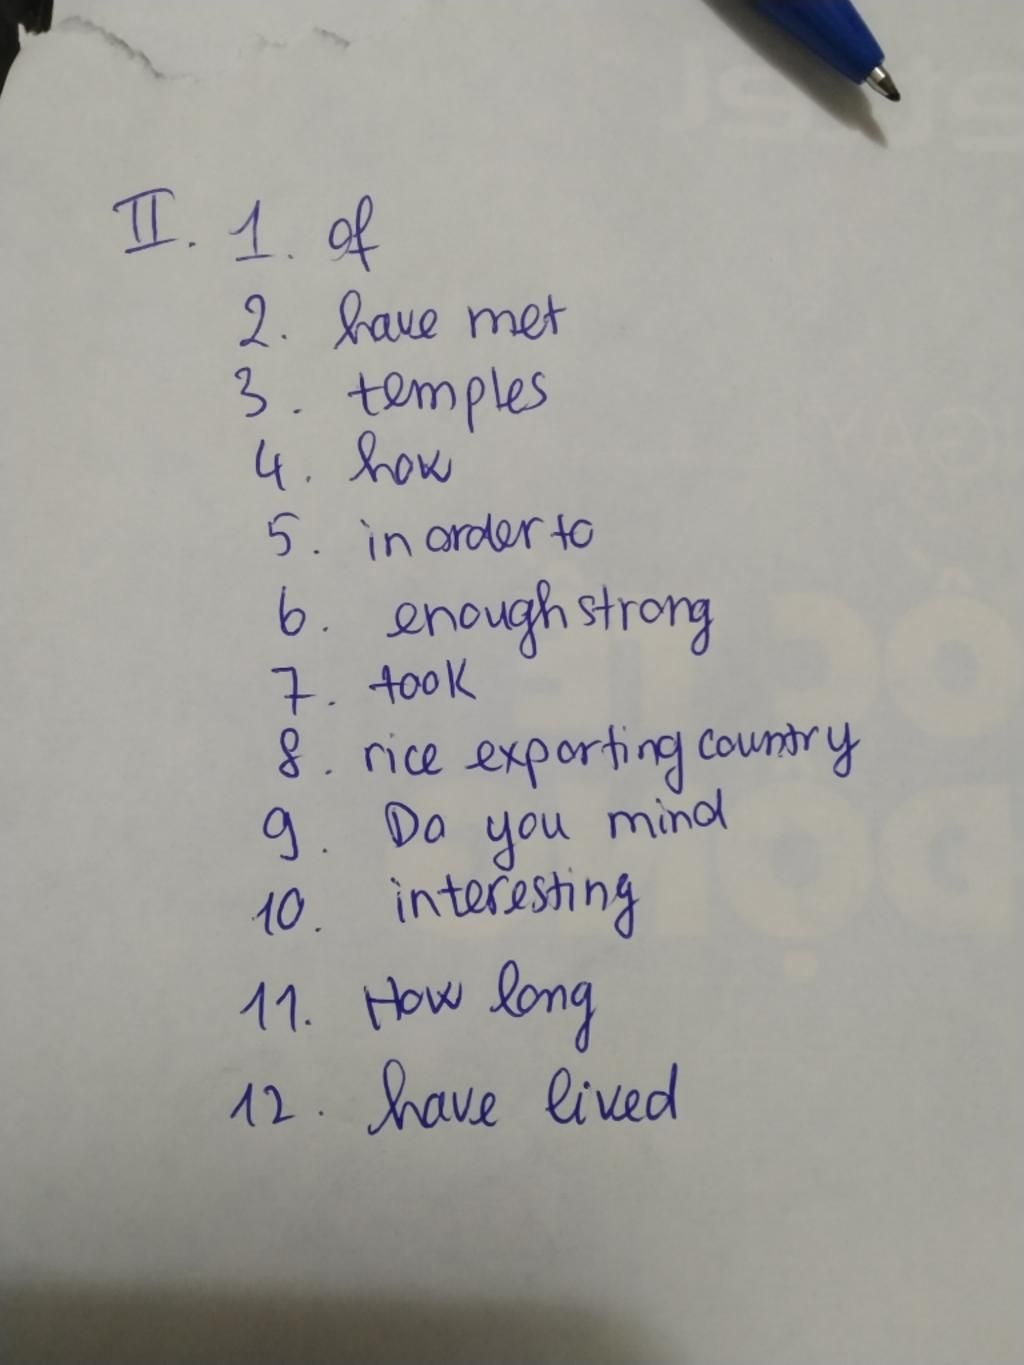 II. 1. of
2. have met
3. temples
4. how
5. in order to
6. enough strong
7. took
8. rice exporting country
9. Do you mind
10. interesting
11. How long
12. have lived